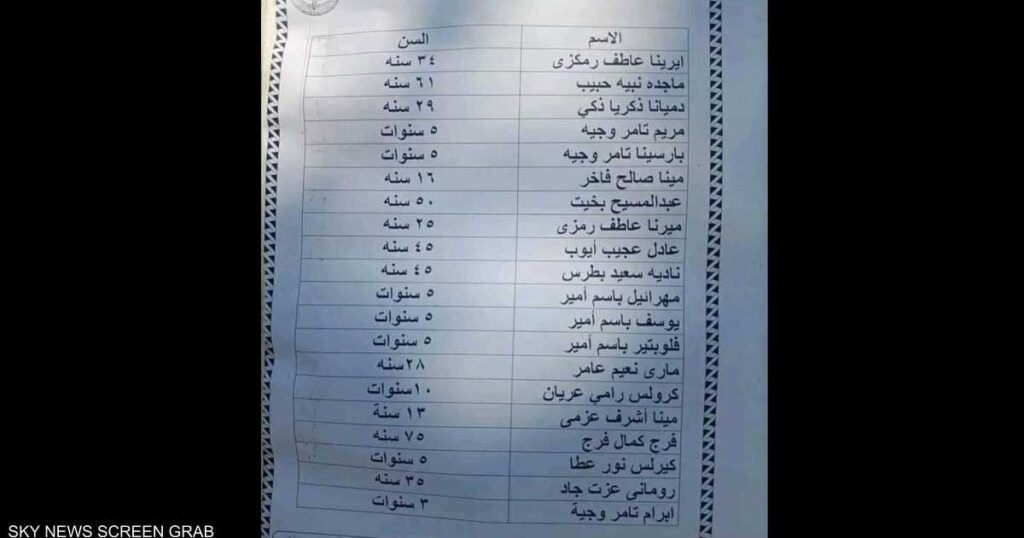 الاسم السن
ايرينا عاطف رمكزى ٣٤ سنه
ماجده نبيه حبيب ٦١ سنه
دميانا ذكريا ذكي ٢٩ سنه
مريم تامر وجيه ٥ سنوات
بارسينا تامر وجيه ٥ سنوات
مينا صالح فاخر ١٦ سنه
عبدالمسيح بخيت ٥٠ سنه
ميرنا عاطف رمزى ٢٥ سنه
عادل عجيب أيوب ٤٥ سنه
ناديه سعيد بطرس ٤٥ سنه
مهرائيل باسم أمير ٥ سنوات
يوسف باسم أمير ٥ سنوات
فلوبتير باسم أمير ٥ سنوات
مارى نعيم عامر ٢٨سنه
كرولس رامي عريان ١٠سنوات
مينا أشرف عزمى ١٣ سنة
فرج كمال فرج ٧٥ سنه
كيرلس نور عطا ٥ سنوات
رومانى عزت جاد ٣٥ سنه
ابرام تامر وجية ٣ سنوات
SKY NEWS SCREEN GRAB